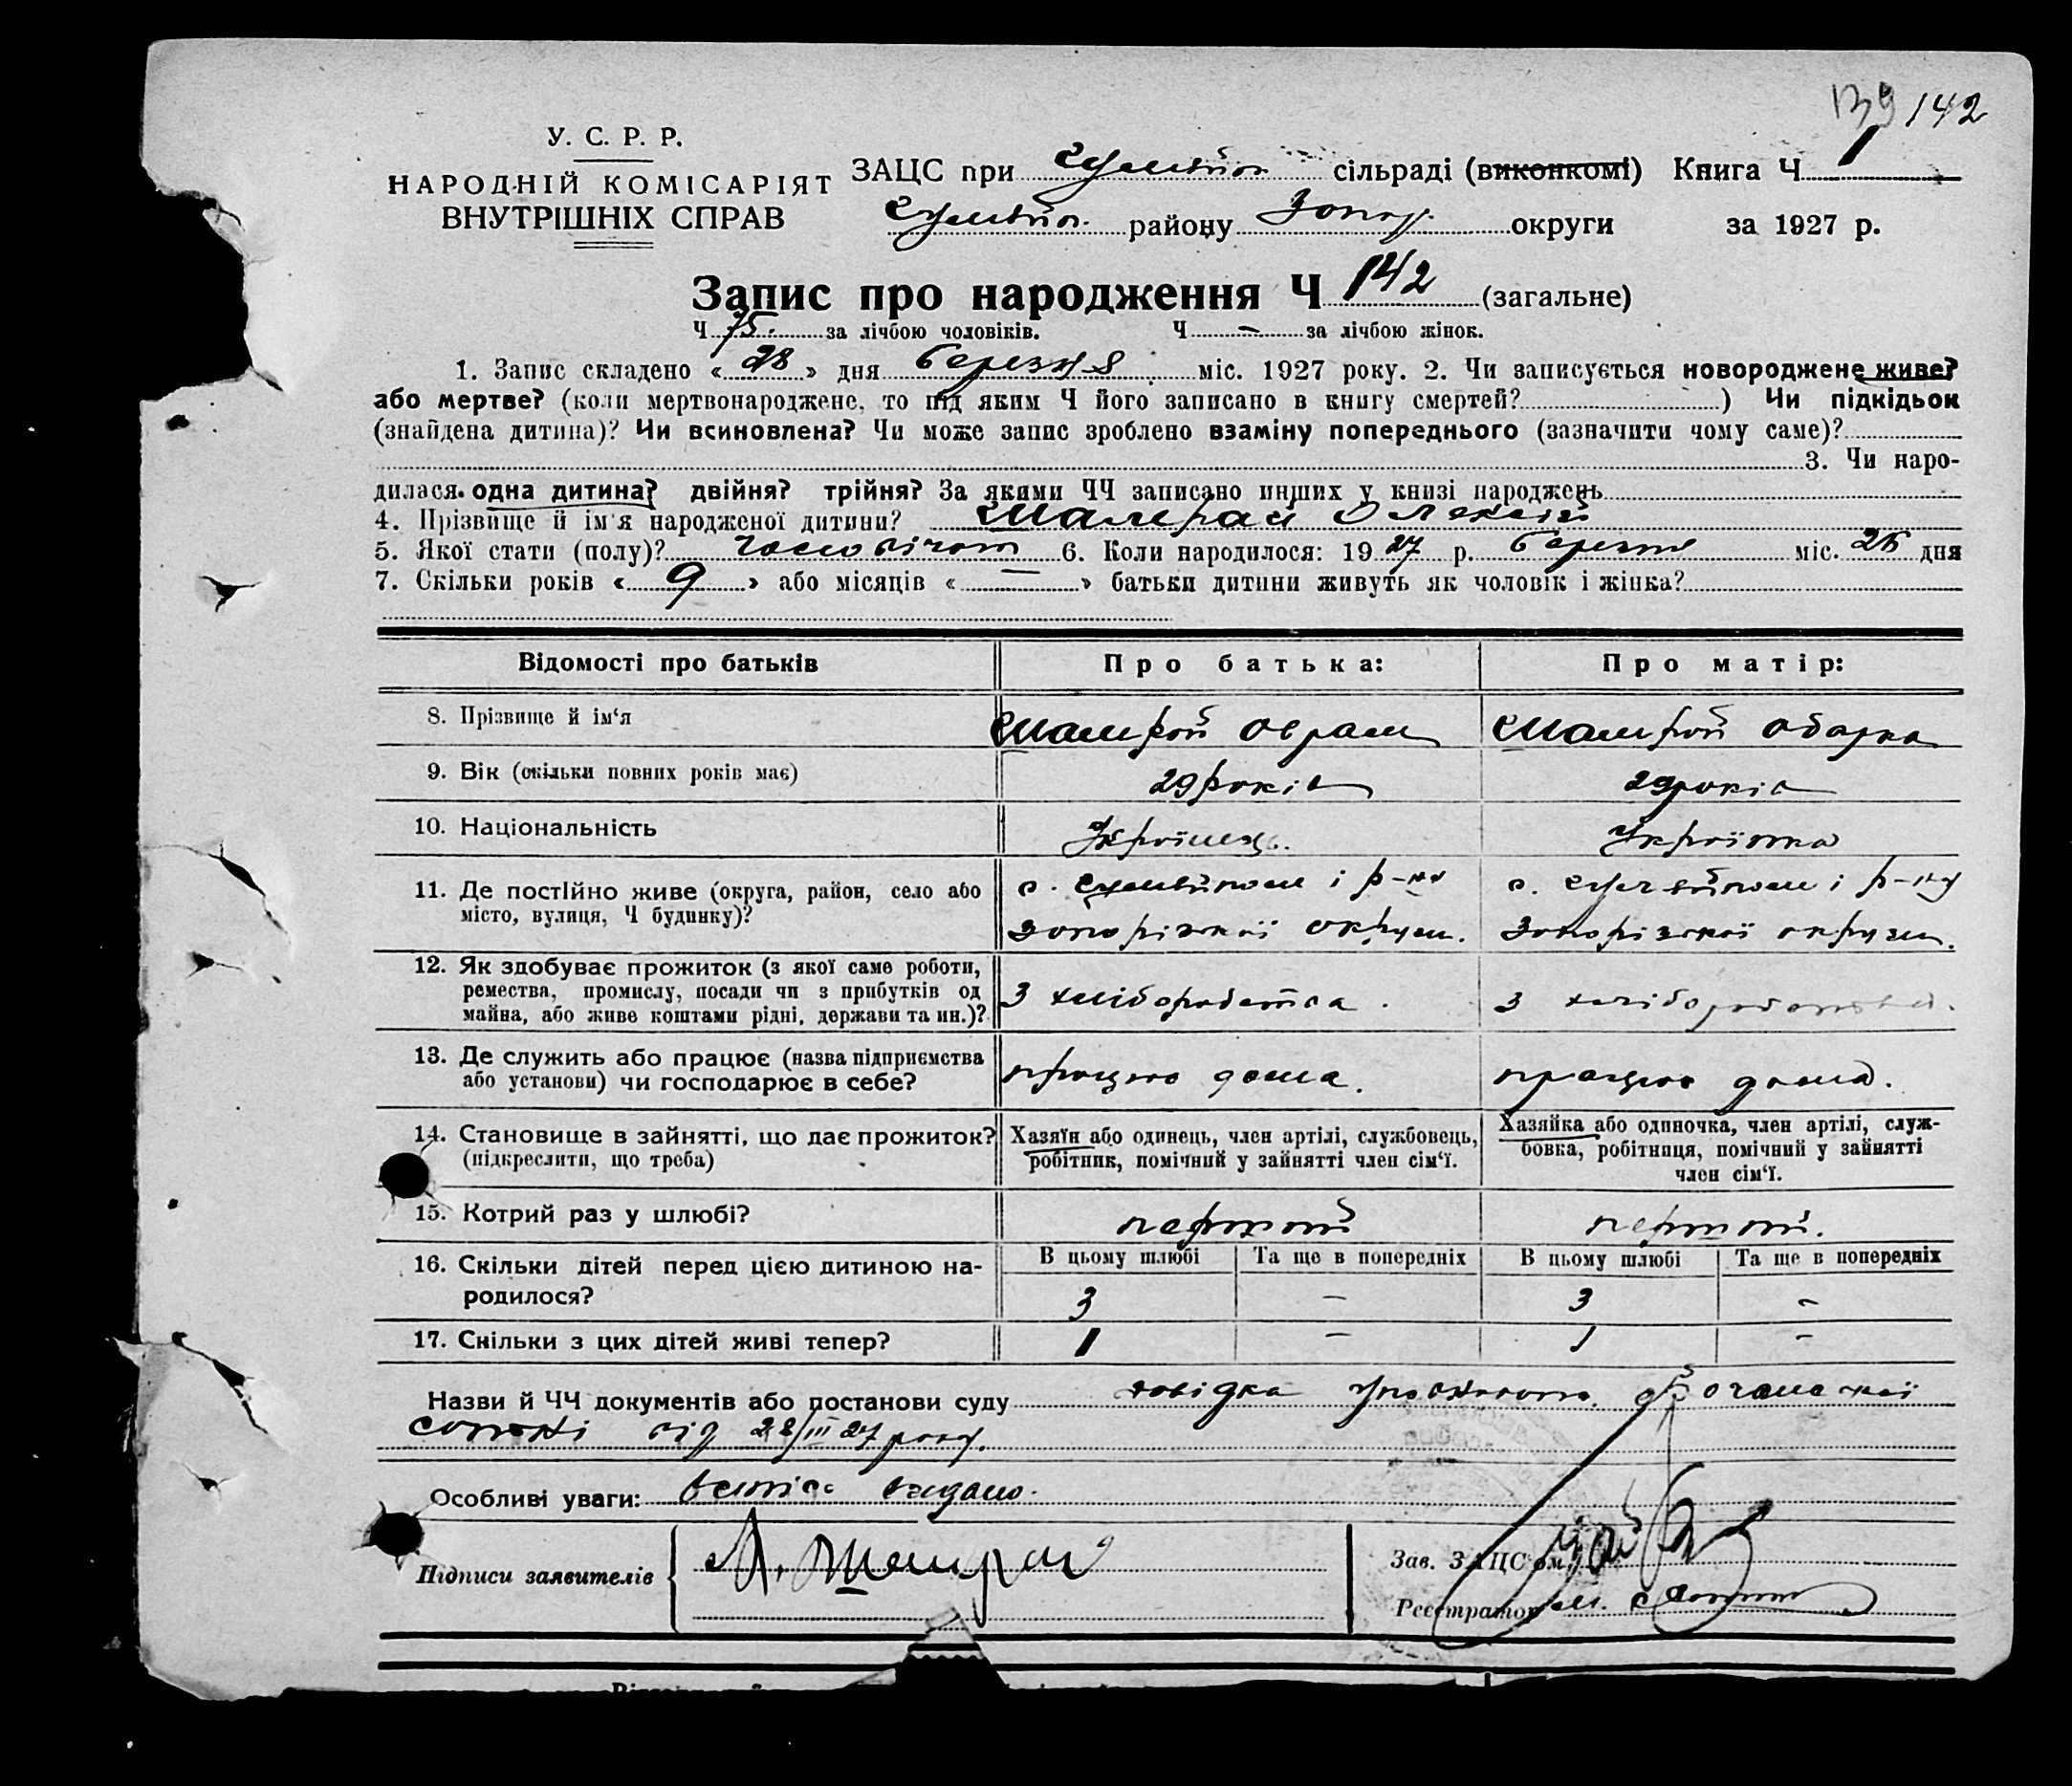 139 142
У. С. Р. Р.
НАРОДНІЙ КОМІСАРІЯТ
ВНУТРІШНІХ СПРАВ
ЗАЦС при Гуляйпол сільраді (виконкомі) Книга Ч 1
Гуляйпол. району Запор. округи за 1927 р.
Запис про народження Ч 142 (загальне)
Ч 75. за лічбою чоловіків. Ч — за лічбою жінок.
1. Запис складено « 28 » дня березня міс. 1927 року. 2. Чи записується новороджене живе?
або мертве? (коли мертвонароджене, то під яким Ч його записано в книгу смертей? ) Чи підкідьок
(знайдена дитина)? Чи всиновлена? Чи може запис зроблено взаміну попереднього (зазначити чому саме)?
3. Чи наро-
дилася одна дитина? двійня? трійня? За якими ЧЧ записано инших у книзі народжень
4. Прізвище й ім'я народженої дитини? Шамрай Олексій
5. Якої стати (полу)? чоловічої 6. Коли народилося: 19 27 р. березня міс. дня
7. Скільки років « 9 » або місяців « — » батьки дитини живуть як чоловік і жінка?
Відомості про батьків Про батька: Про матір:
8. Прізвище й ім'я Шамрай Оврам Шамрай Одарка
9. Вік (скільки повних років має) 29 років 29 років
10. Національність Українець. Українка
11. Де постійно живе (округа, район, село або
місто, вулиця, Ч будинку)?
с. Гуляйполе і р-ну с. Гуляйполе і р-ну
Запорізької округи. Запорізької округи.
12. Як здобуває прожиток (з якої саме роботи,
ремества, промислу, посади чи з прибутків од
майна, або живе коштами рідні, держави та ин.)?
З хліборобства. З хліборобства.
13. Де служить або працює (назва підприємства
або установи) чи господарює в себе?
працює дома. працює дома.
14. Становище в зайнятті, що дає прожиток?
(підкреслити, що треба)
Хазяїн або одинець, член артілі, службовець,
робітник, помічний у зайнятті член сім'ї.
Хазяйка або одиночка, член артілі, служ-
бовка, робітниця, помічний у зайнятті
член сім'ї.
15. Котрий раз у шлюбі? первий первий.
16. Скільки дітей перед цією дитиною на-
родилося?
В цьому шлюбі Та ще в попередніх В цьому шлюбі Та ще в попередніх
3 — 3 —
17. Скільки з цих дітей живі тепер? 1 — 1 —
Назви й ЧЧ документів або постанови суду довідка
сотні від 28/III 27 року.
Особливі уваги: видано.
Підписи заявителів А. Шамрай
Зав. ЗАЦС'ом
Реєстратор